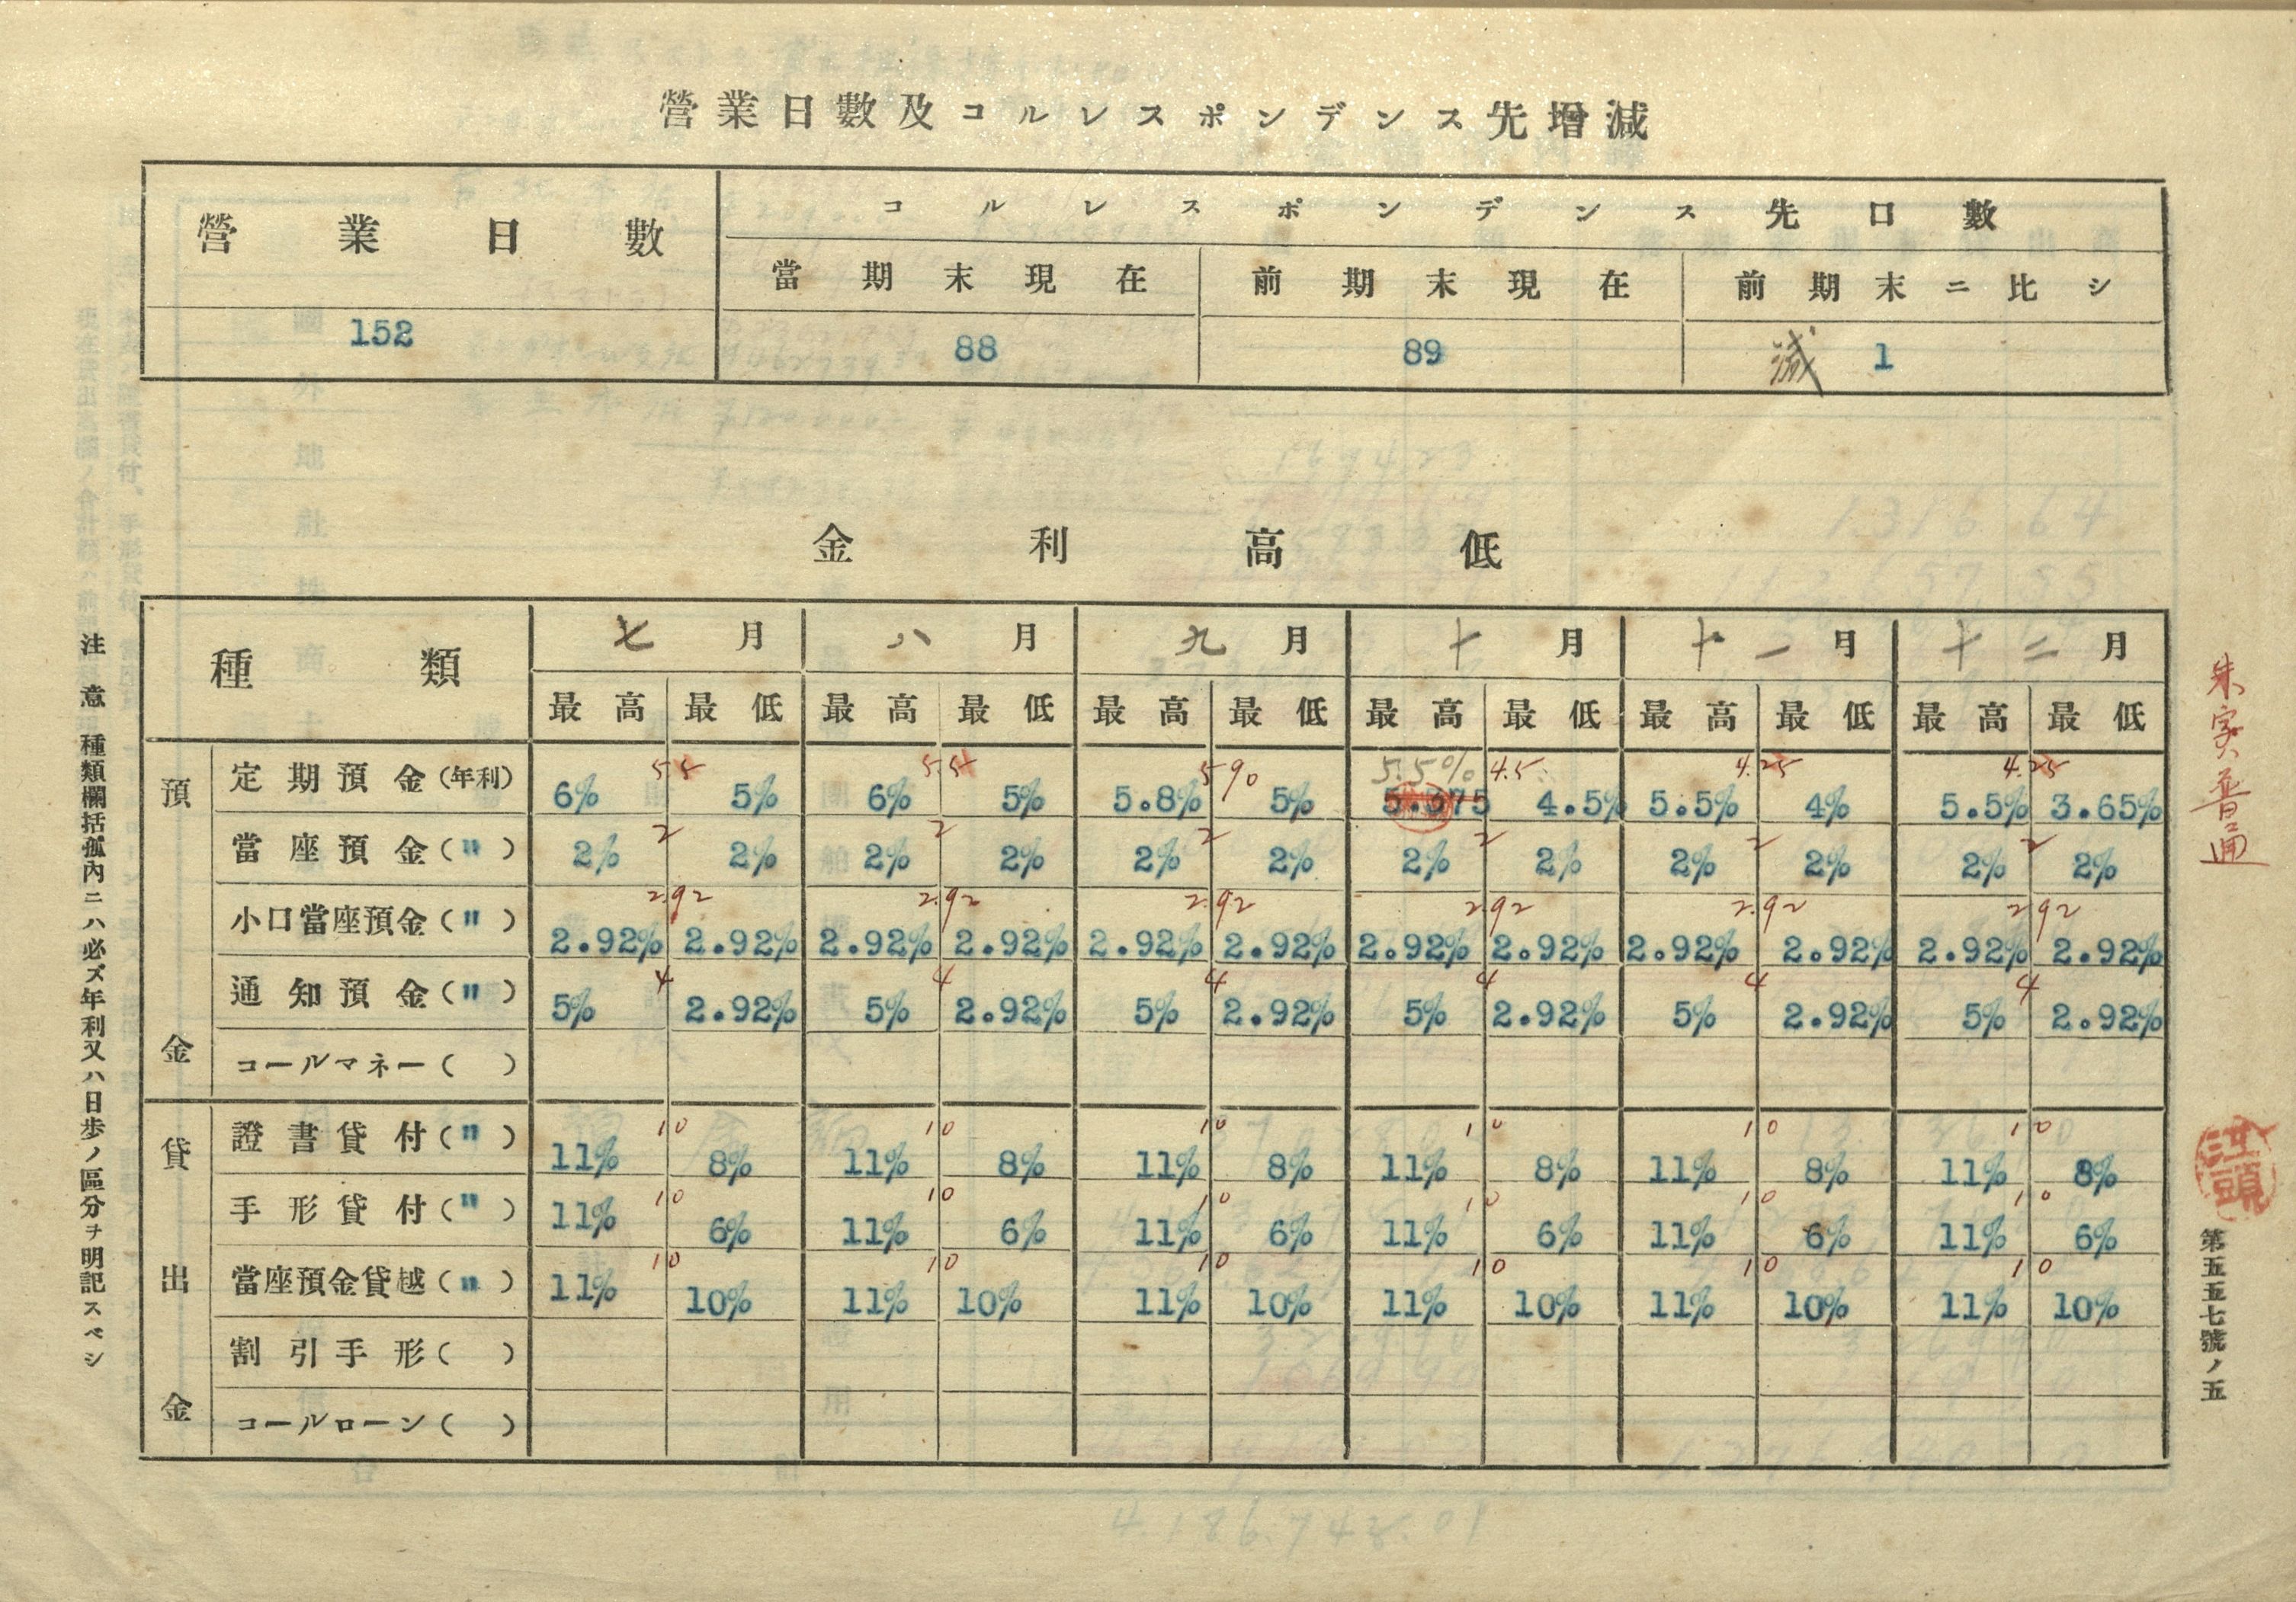 營業日數及コルレスポンデンス先增減
營業日數 コルレスポンデンス先口數
當期末現在 前期末現在 前期末ニ比シ
152 88 89 減 1
金利高低
種類 七月 八月 九月 十月 十一月 十二月
最高 最低 最高 最低 最高 最低 最高 最低 最高 最低 最高 最低
預金
5.5 5.5 5.5% 4.5 4.25 4.25
定期預金(年利) 6% 5% 6% 5% 5.8% 5% 5.375 4.5% 5.5% 4% 5.5% 3.65%
2 2 2 2 2 2
當座預金(〃) 2% 2% 2% 2% 2% 2% 2% 2% 2% 2% 2% 2%
2.92 2.92 2.92 2.92 2.92 2.92
小口當座預金(〃) 2.92% 2.92% 2.92% 2.92% 2.92% 2.92% 2.92% 2.92% 2.92% 2.92% 2.92% 2.92%
4 4 4 4 4 4
通知預金(〃) 5% 2.92% 5% 2.92% 5% 2.92% 5% 2.92% 5% 2.92% 5% 2.92%
コールマネー( )
貸出金
10 10 10 10 10 10
證書貸付(〃) 11% 8% 11% 8% 11% 8% 11% 8% 11% 8% 11% 8%
10 10 10 10 10 10
手形貸付(〃) 11% 6% 11% 6% 11% 6% 11% 6% 11% 6% 11% 6%
10 10 10 10 10 10
當座預金貸越(〃) 11% 10% 11% 10% 11% 10% 11% 10% 11% 10% 11% 10%
割引手形( )
コールローン( )
注意 種類欄括孤內ニハ必ズ年利又ハ日步ノ區分ヲ明記スベシ
朱字普通
江頭
第五五七號ノ五